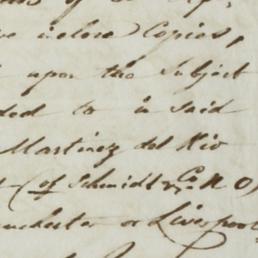 inclose Copies,
upon the Subject
to in said
Martinez del Rio
(of Schmidt & Co. N O)
or Liverpool